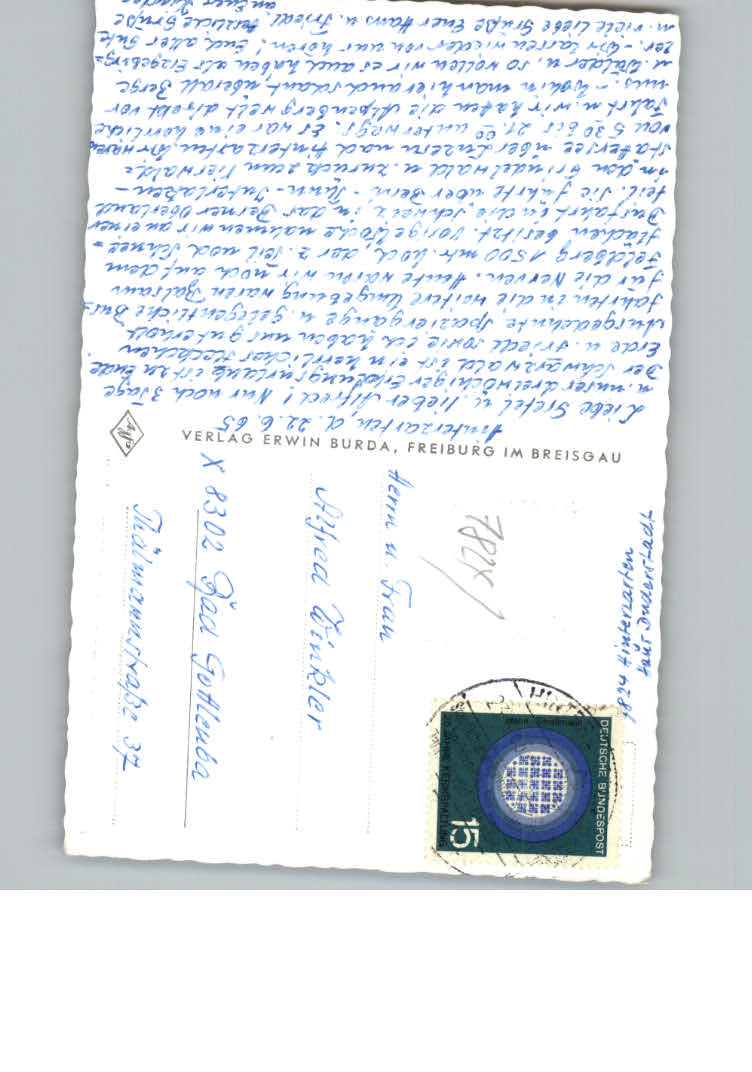 Hinterzarten, d. 22.6.65
Liebe Gretel u. lieber Alfred! Nur noch 3 Tage
u. unser dreiwöchiger Erholungsurlaub ist zu Ende
Der Schwarzwald ist ein herrliches Fleckchen
Erde u. Friedl sowie ich haben uns gut erholt
Ausgedehnte Spaziergänge u. gelegentliche Bus-
fahrten in die weitere Umgebung waren Balsam
für die Nerven. Heute waren wir noch auf dem
Feldberg 1500 mtr. hoch, der z. Teil noch Schnee-
flächen besitzt. Vorige Woche nahmen wir an einer
Busfahrt in die Schweiz, in das Berner Oberland
teil. Sie führte über Bern - Thun - Interlaken -
in den Grindelwald u. zurück zum Vierwald-
stattersee über Luzern nach Hinterzarten. Wir waren
von 5 30 bis 21.00 unterwegs. Es war eine herrliche
Fahrt u. wir hatten die Alpenbergwelt direkt vor
uns. - Wohin man hier auch schaut überall Berge
u. Wälder u. so wollen wir es auch haben als Erzgebirg-
ler. - Wir lassen wieder von uns hören! Euch alles Gute
u. viele liebe Grüße Euer Hans u. Friedl. Herzliche Grüße
an Euer
VERLAG ERWIN BURDA, FREIBURG IM BREISGAU
Agfa
Herrn u. Frau
Alfred Winkler
X 8302 Bad Gottleuba
Thälmannstraße 37
7824
7824 Hinterzarten
Haus Duderstadt
DEUTSCHE BUNDESPOST
15